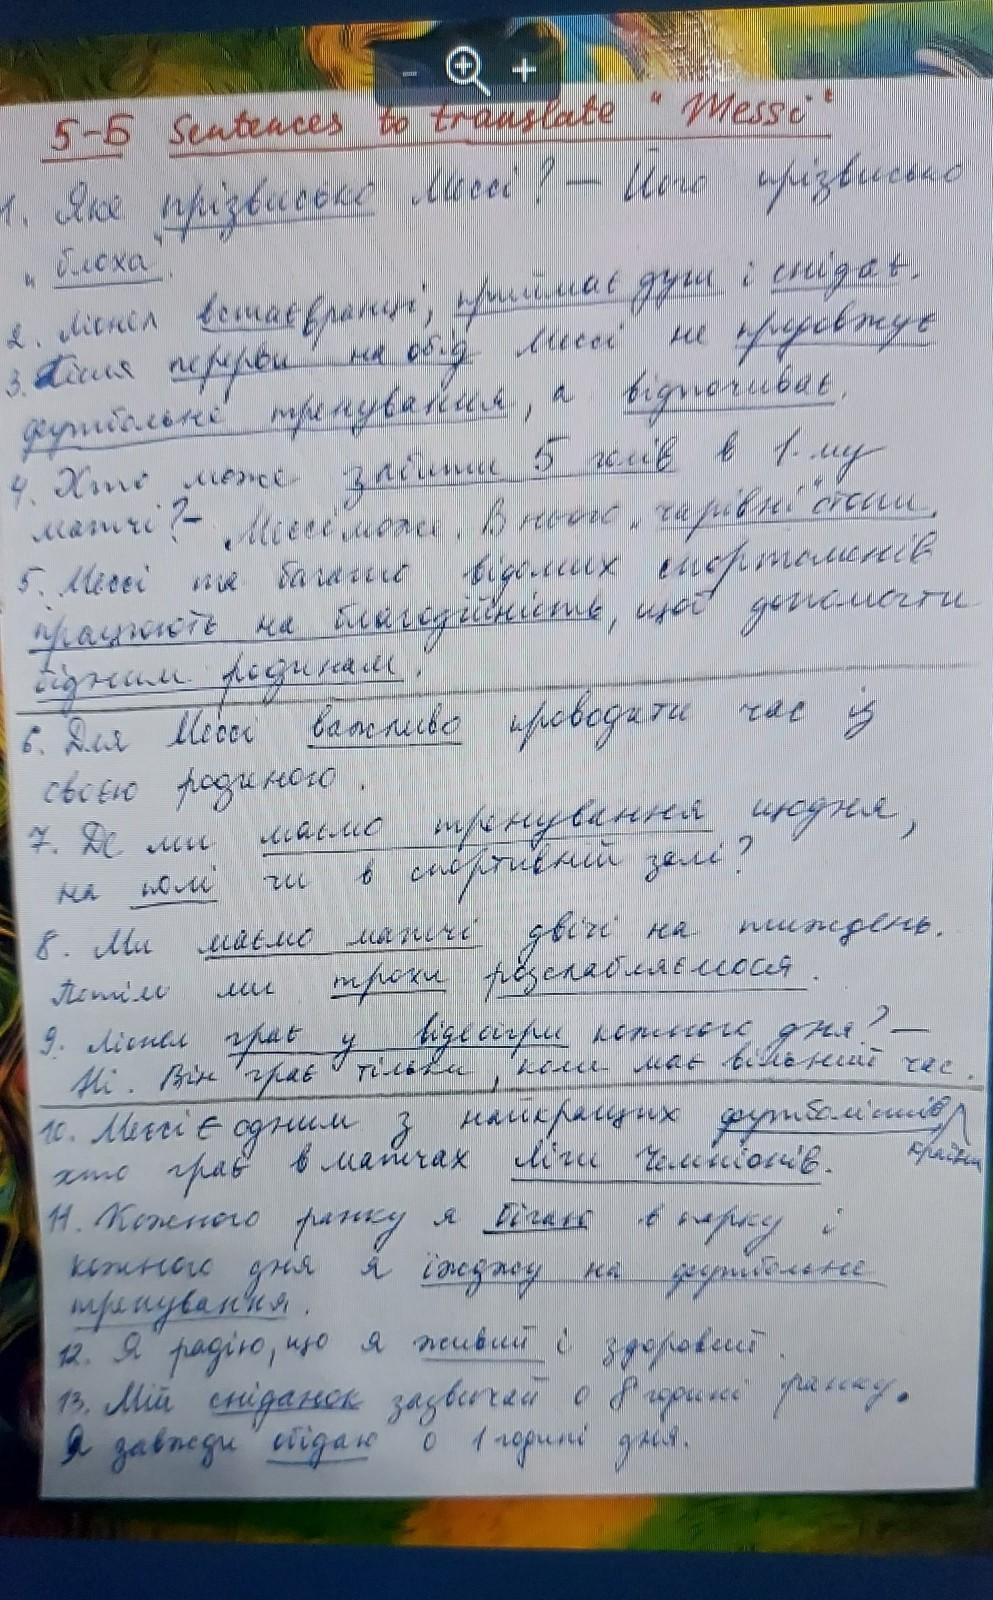 5-Б Sentences to translate "Messi"
1. Яке прізвисько Мессі? – Його прізвисько
"блоха".
2. Ліонел встає вранці, приймає душ і снідає.
3. Після перерви на обід Мессі не продовжує
футбольне тренування, а відпочиває.
4. Хто може забити 5 голів в 1-му
матчі? – Мессі може. В нього "чарівні" стопи.
5. Мессі та багато відомих спортсменів
працюють на благодійність, щоб допомогти
бідним родинам.
6. Для Мессі важливо проводити час із
своєю родиною.
7. Де ми маємо тренування щодня,
на полі чи в спортивній залі?
8. Ми маємо матчі двічі на тиждень.
Потім ми трохи розслабляємося.
9. Ліонел грає у відеоігри кожного дня? –
Ні. Він грає тільки, коли має вільний час.
10. Мессі є одним з найкращих футболістів
країни
хто грає в матчах Ліги Чемпіонів.
11. Кожного ранку я бігаю в парку і
кожного дня я їжджу на футбольне
тренування.
12. Я радію, що я живий і здоровий.
13. Мій сніданок зазвичай о 8 годині ранку.
Я завжди обідаю о 1 годині дня.